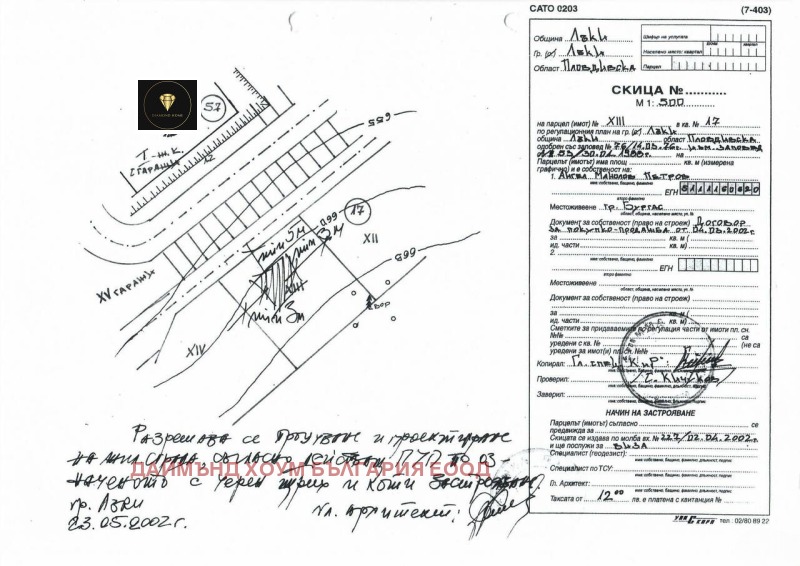 САТО 0203 (7-403)
Община Лъки
Шифър на услугата
Гр. (с) Лъки
Населено място/ квартал
Област Пловдивска
Парцел
СКИЦА №
М 1: 500
на парцел (имот) № XIII в кв. № 17
по регулационния план на гр. (с) Лъки
община Лъки област Пловдивска
одобрен със заповед №
на
Парцелът (имотът) има площ кв. м (измерена
графично) и е собственост на:
1. Ангел Манолов Петров
име: собствено, бащино, фамилно
ЕГН
второ фамилно
Местоживеене гр. Бургас
област, община, населено място, ул. №
Документ за собственост (право на строеж) Договор
за покупко-продажба от 04.03.2002г
за кв. м (
ид. части кв. м)
2.
име: собствено, бащино, фамилно
ЕГН
второ фамилно
Местоживеене
област, община, населено място, ул. №
Документ за собственост (право на строеж)
за кв. м (
ид. части кв. м)
Сметките за придаваемите по регулация части от имоти пл. сн.
№№ са
уредени с кв. № (не са
уредени за имот(и) пл. сн. №№
Копирал: Гл. спец. "КиР":
име: собствено, бащино, фамилно, длъжност, подпис
Проверил:
име: собствено, бащино, фамилно, длъжност, подпис
Заверил:
име: собствено, бащино, фамилно, длъжност, подпис
НАЧИН НА ЗАСТРОЯВАНЕ
Парцелът (имотът) съгласно се
предвижда за
Скицата се издава по молба вх. № 227/02.04.2002г.
и ще послужи за виза
Специалист (геодезист):
име: собствено, бащино, фамилно, длъжност, подпис
Специалист по ТСУ:
име: собствено, бащино, фамилно, длъжност, подпис
Гл. Архитект:
име: собствено, бащино, фамилно, длъжност, подпис
Таксата от 12.00 лв. е платена с квитанция №
тел.: 02/80 89 22
DIAMOND HOME
57
Т-Ж.К.
ГАРАЖИ
12
655
660
17
XII
min 5м
min 3м
665
XV ГАРАЖИ
min 3м
XIV
Разрешава се проучване и проектиране
ДАЙМЪНД ХОУМ БЪЛГАРИЯ ЕООД
начената с черен щрих и коти застрояване.
гр. Лъки
23.05.2002г.
Гл. архитект: